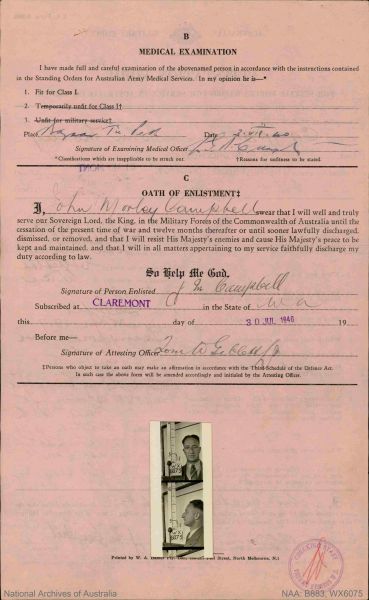 B
MEDICAL EXAMINATION
I have made full and careful examination of the abovenamed person in accordance with the instructions contained
in the Standing Orders for Australian Army Medical Services. In my opinion he is—*
1. Fit for Class I.
2. Temporarily unfit for Class I†
3. Unfit for military service†
Place Date
Signature of Examining Medical Officer
*Classifications which are inapplicable to be struck out. †Reasons for unfitness to be stated.
C
OATH OF ENLISTMENT‡
I, John Morley Campbell swear that I will well and truly
serve our Sovereign Lord, the King, in the Military Forces of the Commonwealth of Australia until the
cessation of the present time of war and twelve months thereafter or until sooner lawfully discharged,
dismissed, or removed, and that I will resist His Majesty's enemies and cause His Majesty's peace to be
kept and maintained, and that I will in all matters appertaining to my service faithfully discharge my
duty according to law.
So Help Me God.
Signature of Person Enlisted J M Campbell
Subscribed at CLAREMONT in the State of W A
this day of 30 JUL 1940 19
Before me—
Signature of Attesting Officer
‡Persons who object to take an oath may make an affirmation in accordance with the Third Schedule of the Defence Act.
In such case the above form will be amended accordingly and initialed by the Attesting Officer.
WX
6075
Printed by W. A. Street, North Melbourne, N.1
National Archives of Australia
NAA: B883, WX6075